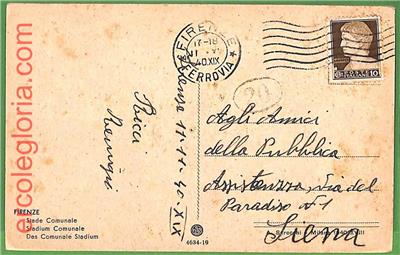 ercolegloria.com
FIRENZE
18-21
11
40.XIX
FERROVIA
10
Firenze 11-11-40-XIX
Ricci
Remigio
Agli Amici
della Pubblica
Assistenza, Via del
Paradiso N° 1
Siena
FIRENZE
Stade Comunale
Stadium Comunale
Das Comunale Stadium
4634-19